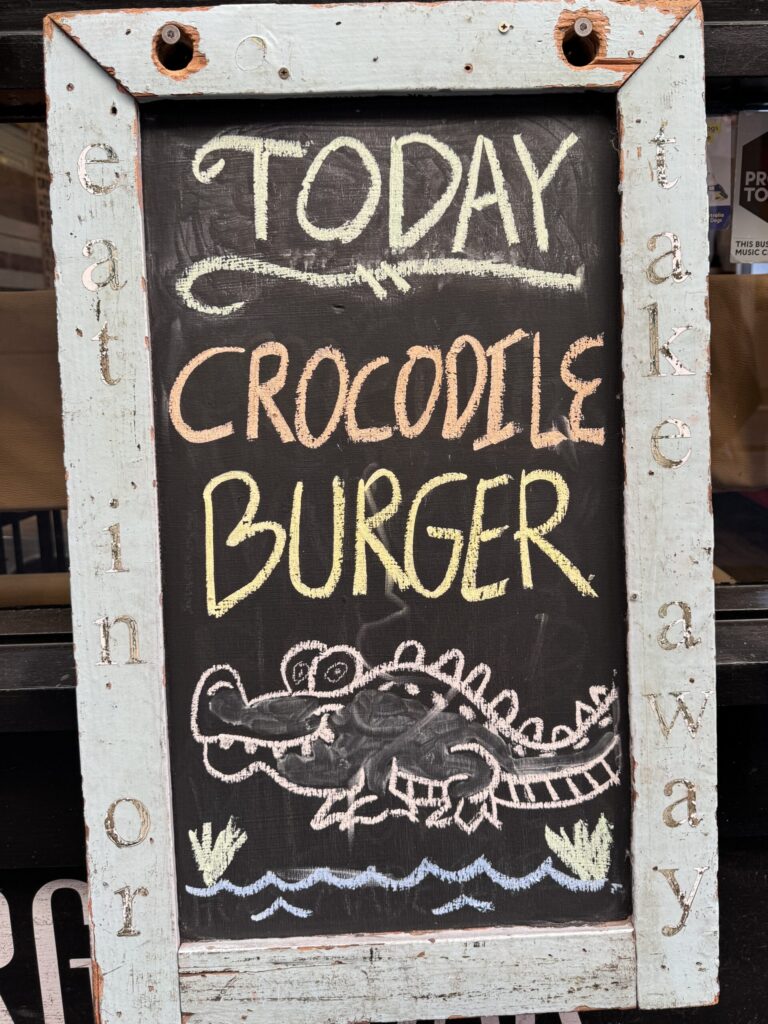 TODAY
CROCODILE
BURGER
eat in or
take away
PRO
TO
THIS BUS
MUSIC C